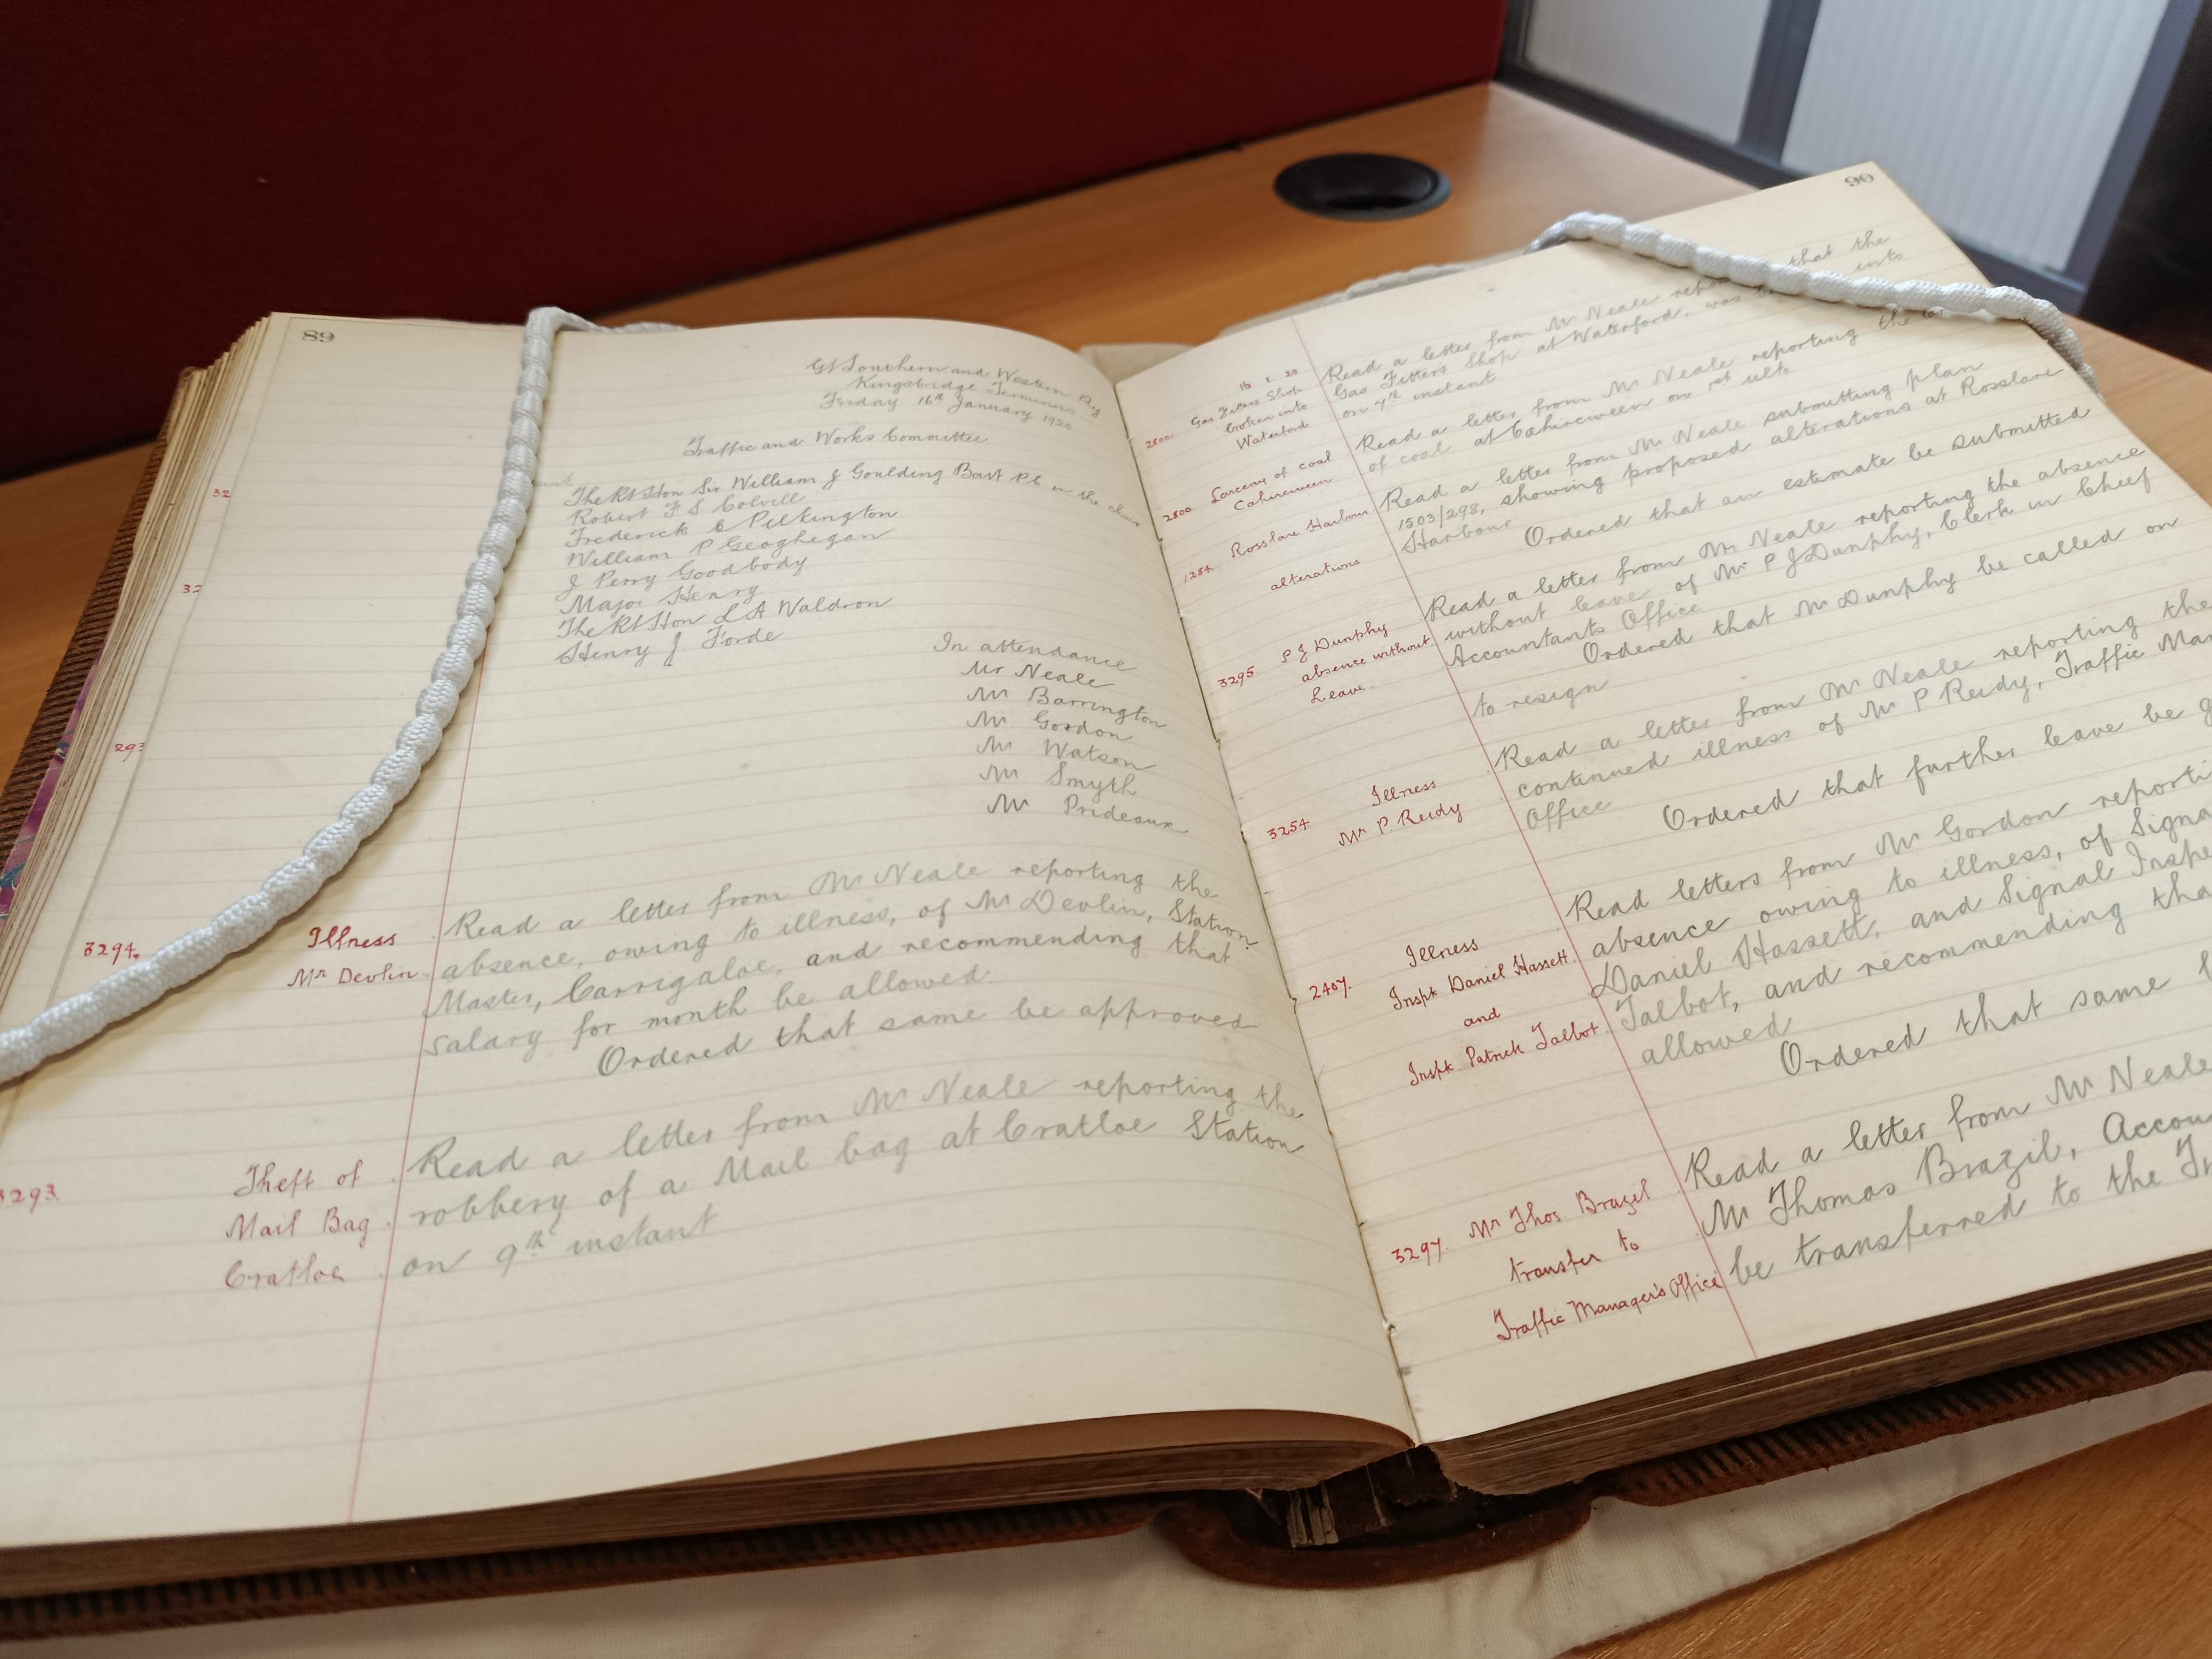 89
Gt Southern and Western Rly
Kingsbridge Terminus
Friday 16th January 1920
Traffic and Works Committee
The Rt Hon Sir William J Goulding Bart P.C. in the chair
Robert F S Colvill
Frederick C Pilkington
William P Geoghegan
J Perry Goodbody
Major Henry
The Rt Hon L A Waldron
Henry J Forde
In attendance
Mr Neale
Mr Barrington
Mr Gordon
Mr Watson
Mr Smyth
Mr Prideaux
32
32
293
3294.
Illness
Mr Devlin
Read a letter from Mr Neale reporting the
absence, owing to illness, of Mr Devlin, Station
Master, Carrigaloe, and recommending that
salary for month be allowed.
Ordered that same be approved
3293
Theft of
Mail Bag
Cratloe
Read a letter from Mr Neale reporting the
robbery of a Mail bag at Cratloe Station
on 9th instant
90
16. 1. 20
2800.
Gas Fitters Shop
broken into
Waterford
Read a letter from Mr Neale that the
Gas Fitters Shop at Waterford, was into
on 7th instant
2800
Larceny of coal
Cahirciveen
Read a letter from Mr Neale reporting the
of coal at Cahirciveen on ulto
1284.
Rosslare Harbour
alterations
Read a letter from Mr Neale submitting plan
1503/298, showing proposed alterations at Rosslare
Harbour
Ordered that an estimate be submitted
3295
P J Dunphy
absence without
Leave.
Read a letter from Mr Neale reporting the absence
without leave of Mr P J Dunphy, Clerk in Chief
Accountants Office
Ordered that Mr Dunphy be called on
to resign
3254
Illness
Mr P. Reidy
Read a letter from Mr Neale reporting the
continued illness of Mr P Reidy, Traffic Ma
Office
Ordered that further leave be g
2407.
Illness
Inspr. Daniel Hassett
and
Inspr. Patrick Talbot
Read letters from Mr Gordon reporti
absence owing to illness, of Signa
Daniel Hassett, and Signal Inspe
Talbot, and recommending tha
allowed
Ordered that same b
3297.
Mr Thos Brazil
transfer to
Traffic Manager's Office
Read a letter from Mr Neale
Mr Thomas Brazil, Accou
be transferred to the Tr